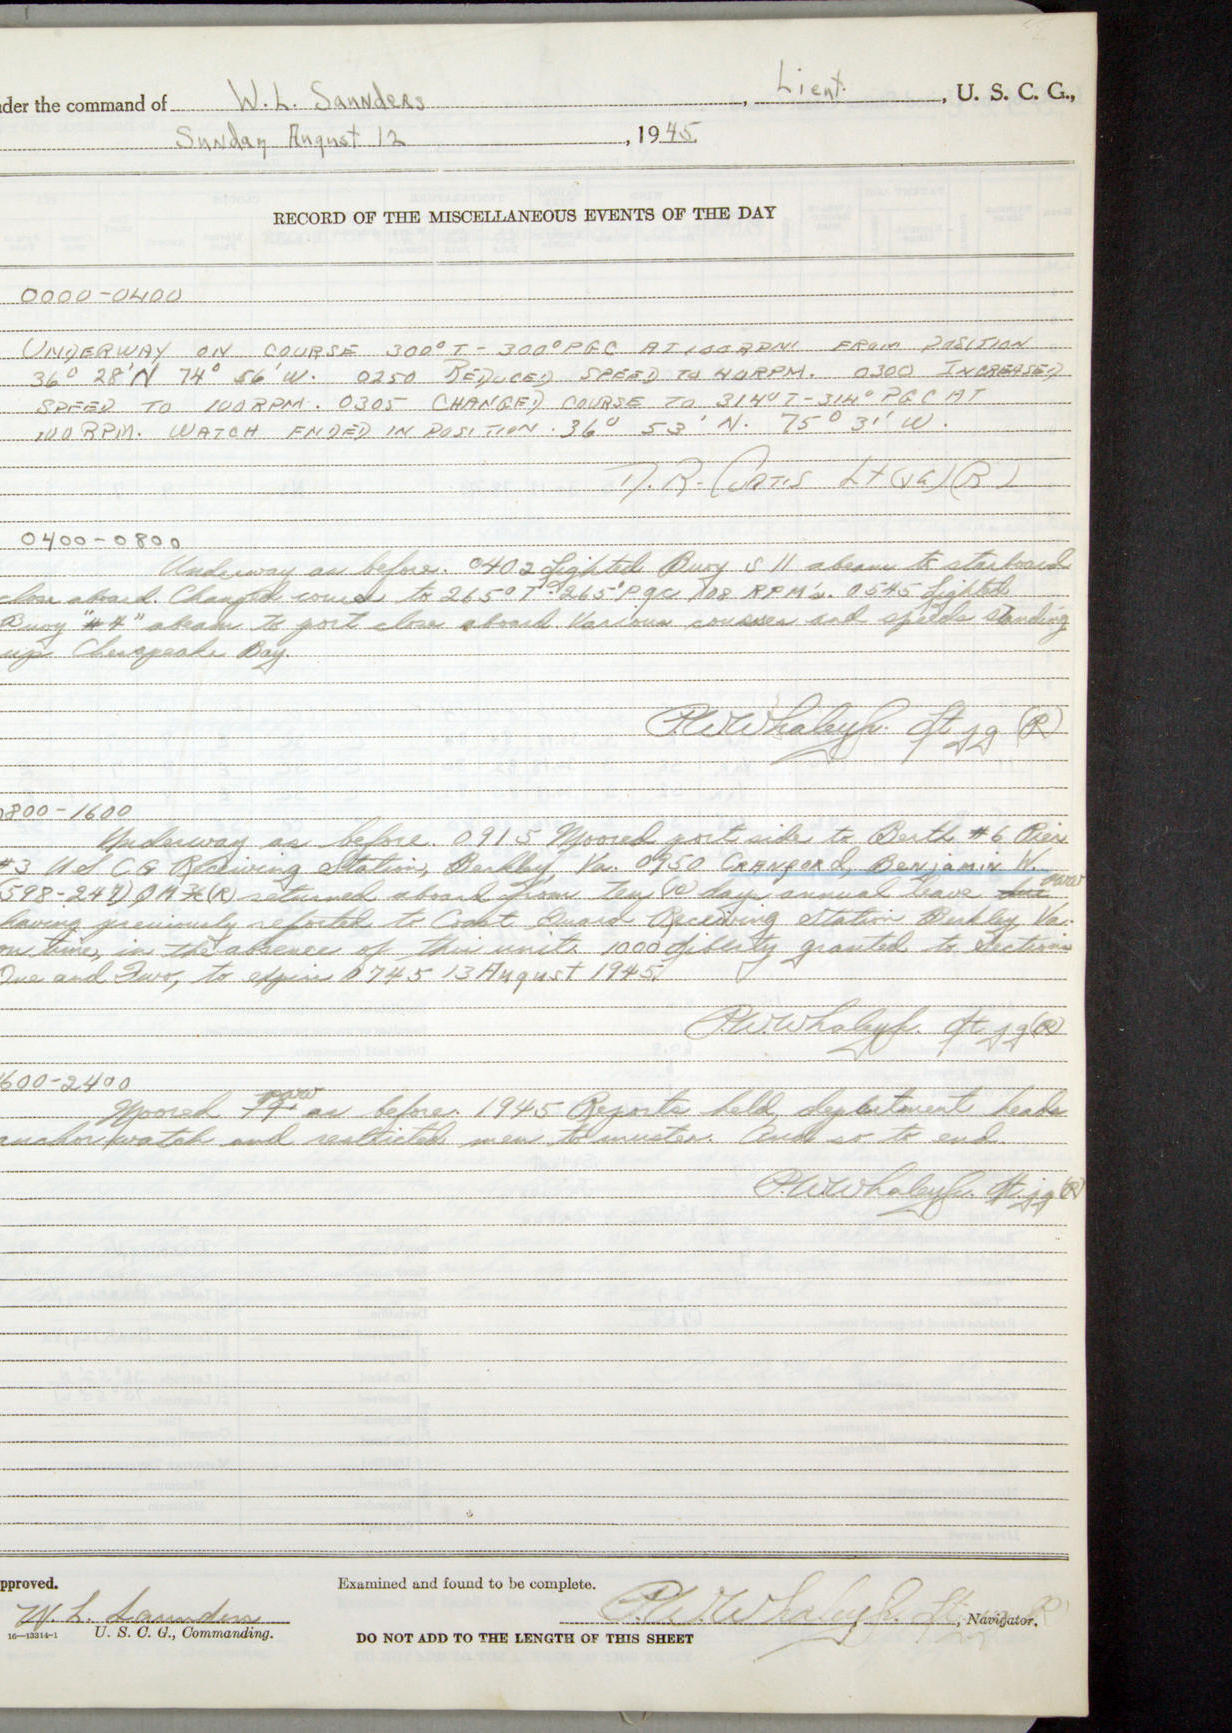 nder the command of W. L. Saunders, Lieut., U. S. C. G.,
Sunday August 12, 1945
RECORD OF THE MISCELLANEOUS EVENTS OF THE DAY
0000-0400
UNDERWAY ON COURSE 300° T - 300° PGC AT 100 RPM FROM POSITION
36° 28' N 74° 56' W. 0250 REDUCED SPEED TO 40 RPM. 0300 INCREASED
SPEED TO 100 RPM. 0305 CHANGED COURSE TO 314° T - 314° PGC AT
100 RPM. WATCH ENDED IN POSITION. 36° 53' N. 75° 31' W.
R. CURTIS Lt (JG) (R)
0400-0800
Underway as before. 0402 Lighted Buoy S 11 abeam to starboard
close aboard. Changed course to 265° T - 265° Pgc 108 RPM's. 0545 Lighted
Buoy "#4" abeam to port close aboard. Various courses and speeds standing
up Chesapeake Bay.
P.W. Whaley Jr. Lt jg (R)
0800-1600
Underway as before. 0915 Moored port side to Berth #6 Pier
#3 U.S. C G Receiving Station, Berkley, Va. 0950 CRANFORD, BENJAMIN W.
(598-247) (R) returned aboard from ten (10) days annual leave
having previously reported to Coast Guard Receiving Station Berkley, Va.
on time, in the absence of this unit. 1000 Liberty granted to Sections
One and Two, to expire 0745 13 August 1945.
P.W. Whaley Jr. Lt jg (R)
1600-2400
Moored as before. 1945 Reports held, department heads
anchor watch and restricted men to muster. And so to end.
P.W. Whaley Jr. Lt. jg (R)
pproved.
W. L. Saunders
16—13314-1 U. S. C. G., Commanding.
Examined and found to be complete.
P.W. Whaley Jr. Lt jg (R), Navigator.
DO NOT ADD TO THE LENGTH OF THIS SHEET